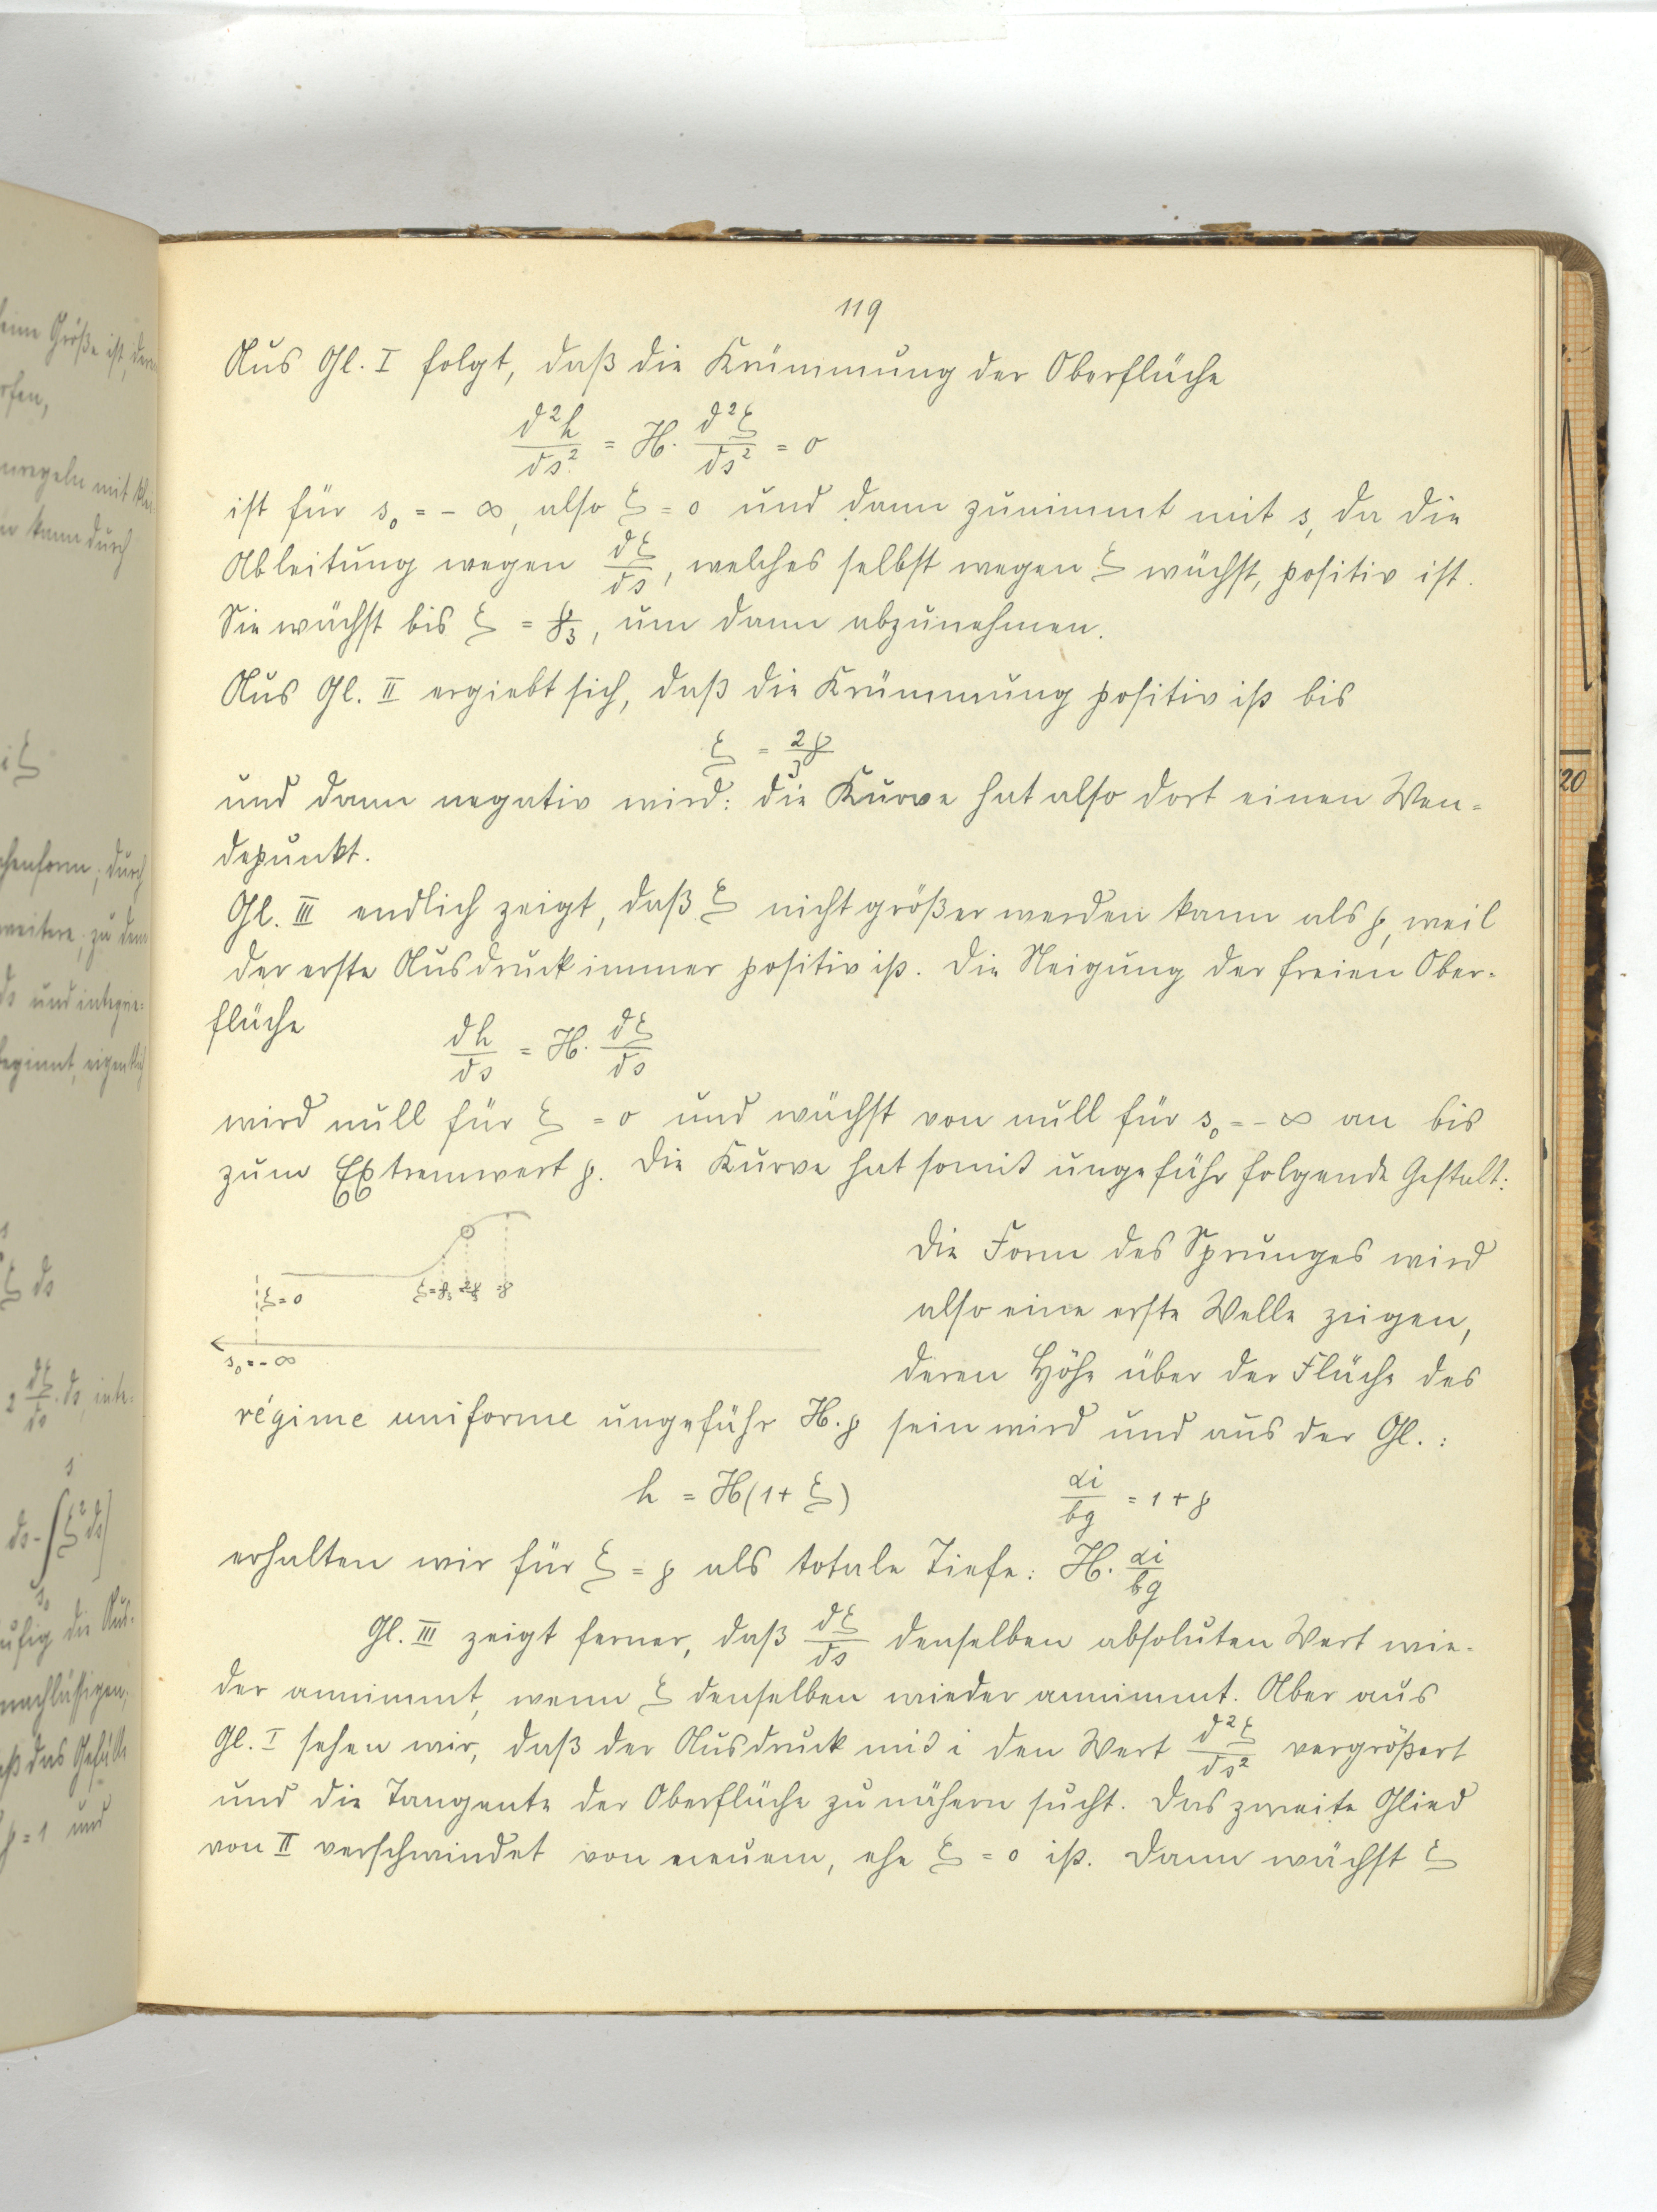 119
Aus Gl. I folgt, daß die Krümmung der Oberfläche
d²h/ds² = H. d²ξ/ds² = 0
ist für s₀ = - ∞, also ξ = 0 und dann zunimmt mit s, da die
Ableitung wegen dξ/ds, welches selbst wegen ξ wächst, positiv ist.
Sie wächst bis ξ = p/3, um dann abzunehmen.
Aus Gl. II ergiebt sich, daß die Krümmung positiv ist bis
ξ = 2p/3
und dann negativ wird: die Kurve hat also dort einen Wen=
depunkt.
Gl. III endlich zeigt, daß ξ nicht größer werden kann als p, weil
der erste Ausdruck immer positiv ist. Die Neigung der freien Ober=
fläche
dh/ds = H. dξ/ds
wird null für ξ = 0 und wächst von null für s₀ = - ∞ an bis
zum Extremwert p. Die Kurve hat somit ungefähr folgende Gestalt:
ξ = 0
ξ = p/3 = 2p/3 = p
s₀ = - ∞
Die Form des Sprunges wird
also eine erste Welle zeigen,
deren Höhe über der Fläche des
régime uniforme ungefähr H.p sein wird und aus der Gl. :
h = H(1 + ξ) αi/bg = 1 + p
erhalten wir für ξ = p als totale Tiefe: H. αi/bg
Gl. III zeigt ferner, daß dξ/ds denselben absoluten Wert wie=
der annimmt, wenn ξ denselben wieder annimmt. Aber aus
Gl. I sehen wir, daß der Ausdruck mit i den Wert d²ξ/ds² vergrößert
und die Tangente der Oberfläche zu nähern sucht. Das zweite Glied
von II verschwindet von neuem, ehe ξ = 0 ist. Dann wächst ξ
20